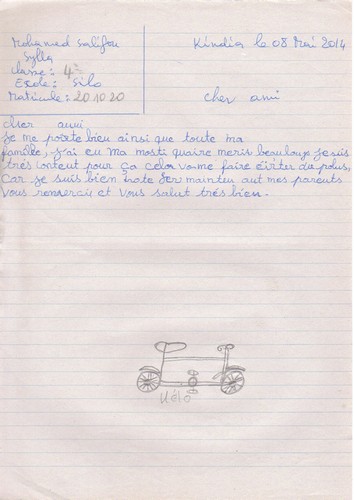 Mohamed Salifou
Sylla
Classe: 4è
Ecole: Silo
Matricule: 20 10 20
Kindia le 08 Mai 2014
cher ami
cher ami
Je me porte bien ainsi que toute ma
famille, J'ai eu ma mosti quaire meris beaucoup Je suis
très contant pour ça cela va me faire éviter du palus,
Car Je suis bien traté Ser maintui aut mes parents
Vous remsercie et Vous salut très bien.
Vélo